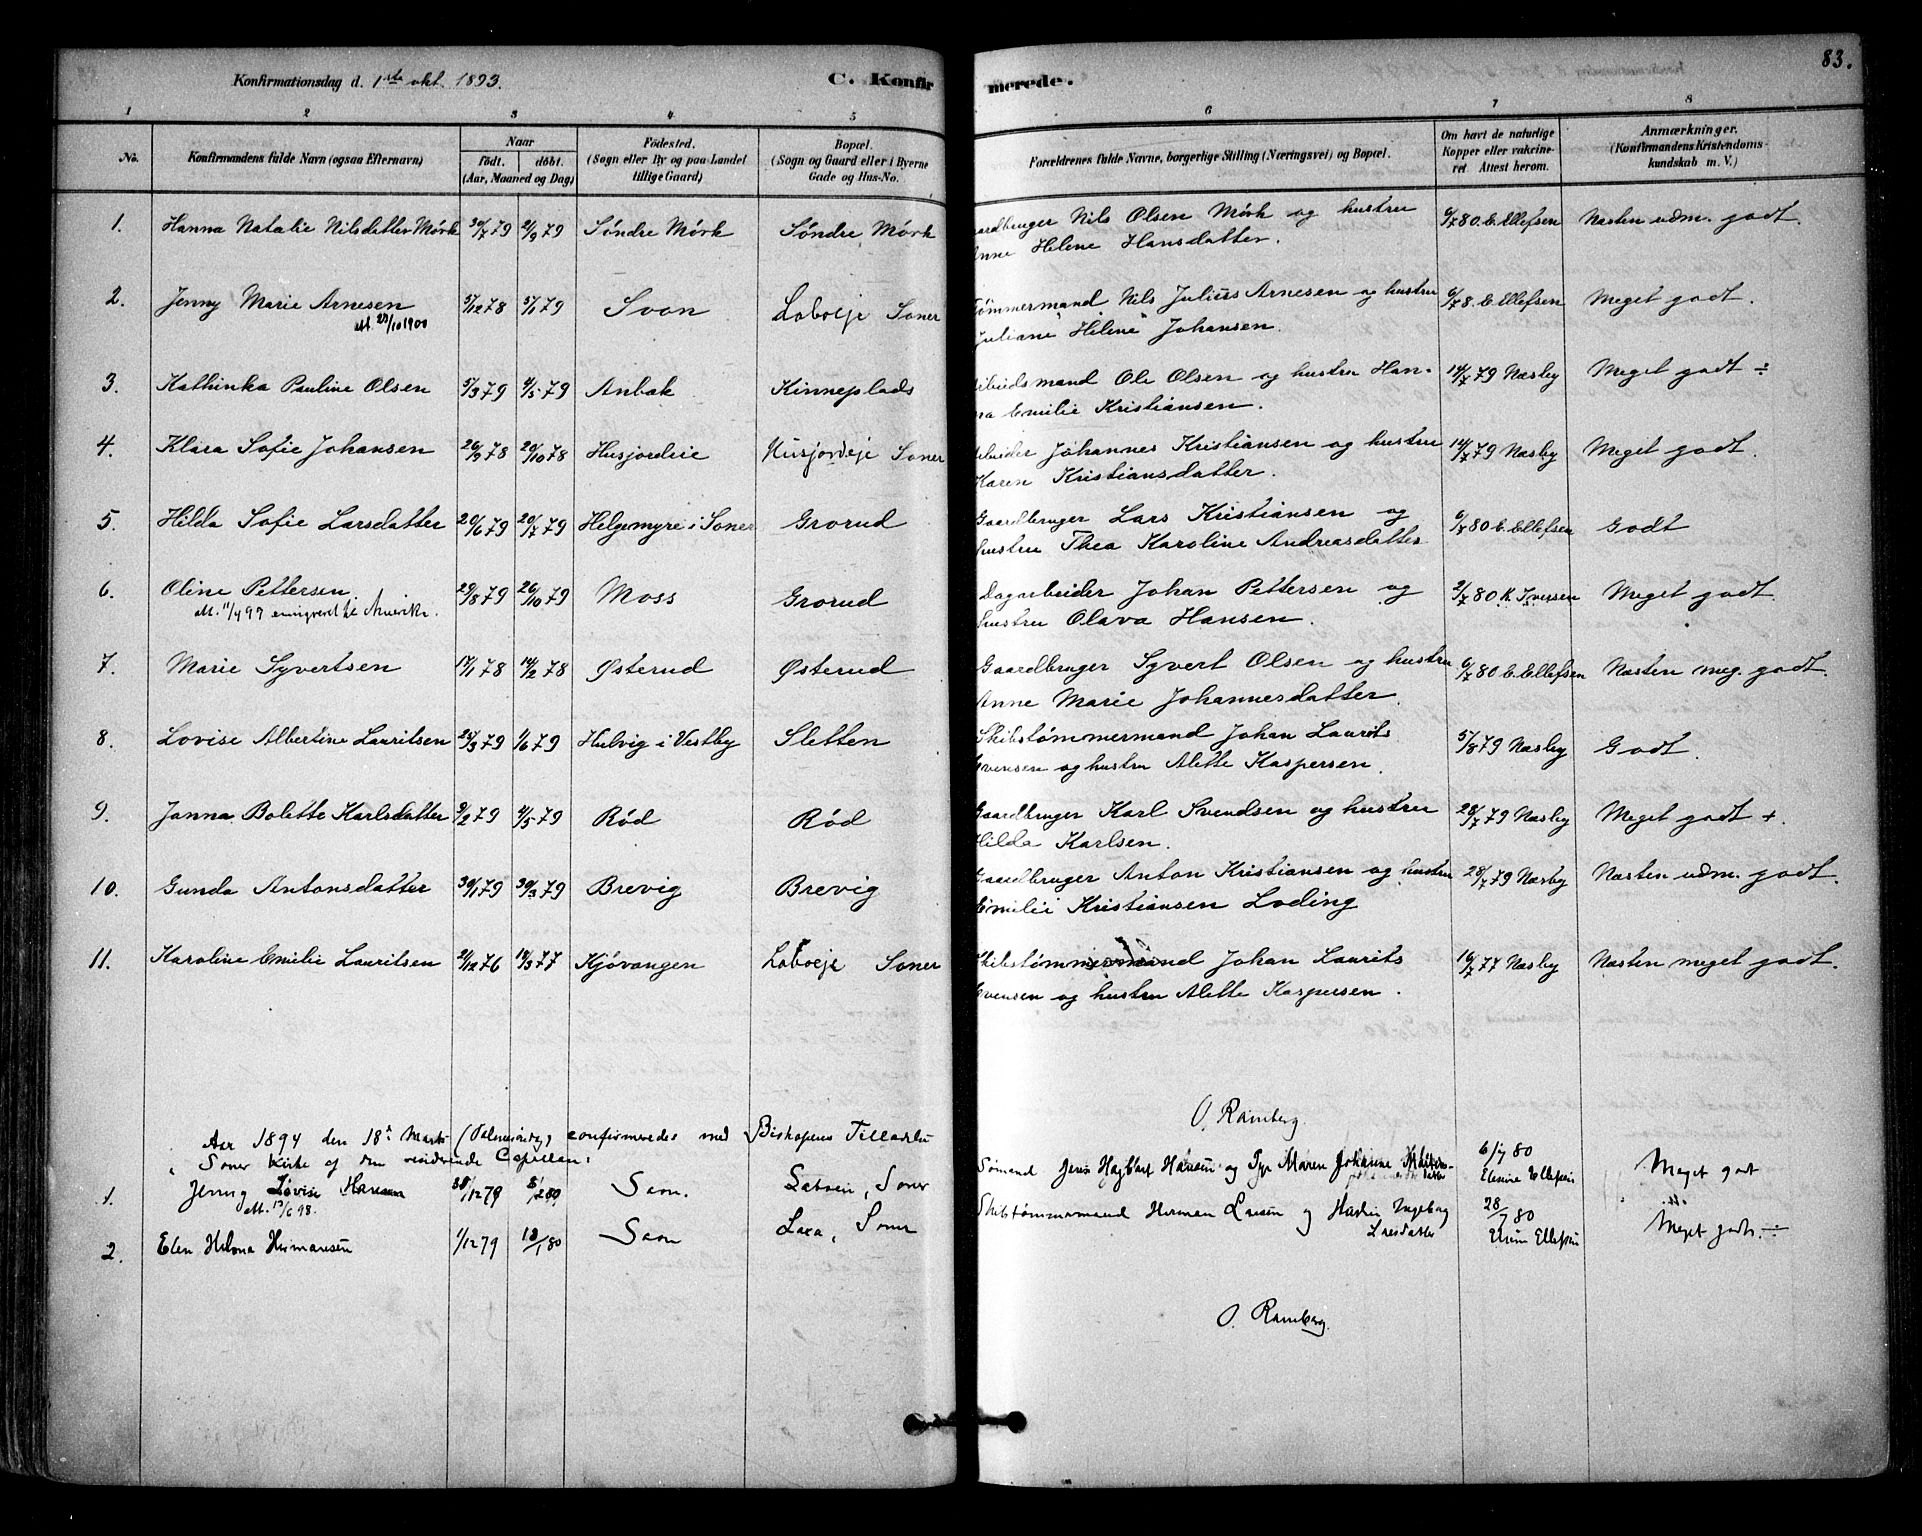 Konfirmationsdag d. 1ste okt. 1893.
C. Konfirmerede.
83.
1 2 3 4 5 6 7 8
No.
Konfirmandens fulde Navn (ogsaa Efternavn)
Naar
født. døbt.
(Aar, Maaned og Dag)
Fødested.
(Sogn eller By og paa Landet
tillige Gaard)
Bopæl.
(Sogn og Gaard eller i Byerne
Gade og Hus-No.
Forældrenes fulde Navne, borgerlige Stilling (Næringsvei) og Bopæl.
Om havt de naturlige
Kopper eller vakcine-
ret Attest herom.
Anmærkninger.
(Konfirmandens Kristendoms-
kundskab m. V.)
1. Hanna Natalie Nilsdatter Mørk 30/7 79 21/9 79 Søndre Mørk Søndre Mørk aardbruger Nils Olsen Mørk og hustru 6/7 80. E. Ellefsen Næsten udm. godt.
nne Helene Hansdatter.
2. Jenny Marie Arnesen 5/12 78 5/1 79 Svon Laboeje Soner Tømmermand Nils Julius Arnesen og hustru 6/7 8. E. Ellefsen Meget godt.
att. 23/10 1900 Juliane "Helene" Johansen.
3. Kathinka Pauline Olsen 5/3 79 4/5 79 Anbak Kinneplads rbeidsmand Ole Olsen og hustru Han- 14/7 79 Næsby Meget godt ÷
na Emilie Kristiansen.
4. Klara Sofie Johansen 26/9 78 20/10 78 Husjordeie Husjordeje Soner rbeider Johannes Kristiansen og hustru 14/7 79 Næsby Meget godt.
Karen Kristiansdatter.
5. Hilda Sofie Larsdatter 20/6 79 20/7 79 Helgemyre i Soner Grorud Gaardbruger Lars Kristiansen og 6/7 80 E. Ellefsen Godt
hustru Thea Karoline Andreasdatter
6. Oline Pettersen. 29/8 79 26/10 79 Moss Grorud Dagarbeider Johan Pettersen og 2/7 80 K. Iversen Meget godt.
att. 11/4 97 emigreret til Amerika. hustru Olava Hansen.
7. Marie Syvertsen 17/1 78 14/2 78 Østerud Østerud Gaardbruger Syvert Olsen og hustru 6/7 80 E. Ellefsen Næsten meg. godt.
Anne Marie Johannesdatter.
8. Lovise Albertine Lauritsen 23/3 79 1/6 79 Hulvig i Vestby Sletten Skibstømmermand Johan Laurits 5/8 79 Næsby Godt.
Evensen og hustru Alette Kaspersen.
9. Janna Bolette Karlsdatter 9/2 79 4/5 79 Rød Rød Gaardbruger Karl Svendsen og hustru 28/7 79 Næsby Meget godt +.
Hilda Karlsen.
10. Gunda Antonsdatter 30/1 79 30/3 79 Brevig Brevig Gaardbruger Anton Kristiansen og hustru 28/7 79 Næsby Næsten udm. godt.
Emilie Kristiansen Loding
11. Karoline Emilie Lauritsen 21/12 76 18/3 77 Kjøvangen Laboeje Soner Skibstømmermand Johan Laurits 16/7 77 Næsby Næsten meget godt.
Evensen og hustru Alette Kaspersen.
O. Ramberg.
Aar 1894 den 18de Marts (Palmesøndag) confirmeredes med Biskopens Tilladelse
i Soner Kirke af den residerende Capellan:
1. Jenny Lovise Hansen 79 Saon. Soner Sømand Jens Hansen og Maren Johanne 6/7 80 Meget godt
att. 12/6 98. Elesine Ellefsen
2. Elen Helena Hermansen 1/12 79 18/1 80 Saon Soner Skibstømmermand Herman Larsen og Hustru Ingeborg 28/7 80 Meget godt. ÷
Larsdatter Ellefsen
O. Ramberg.